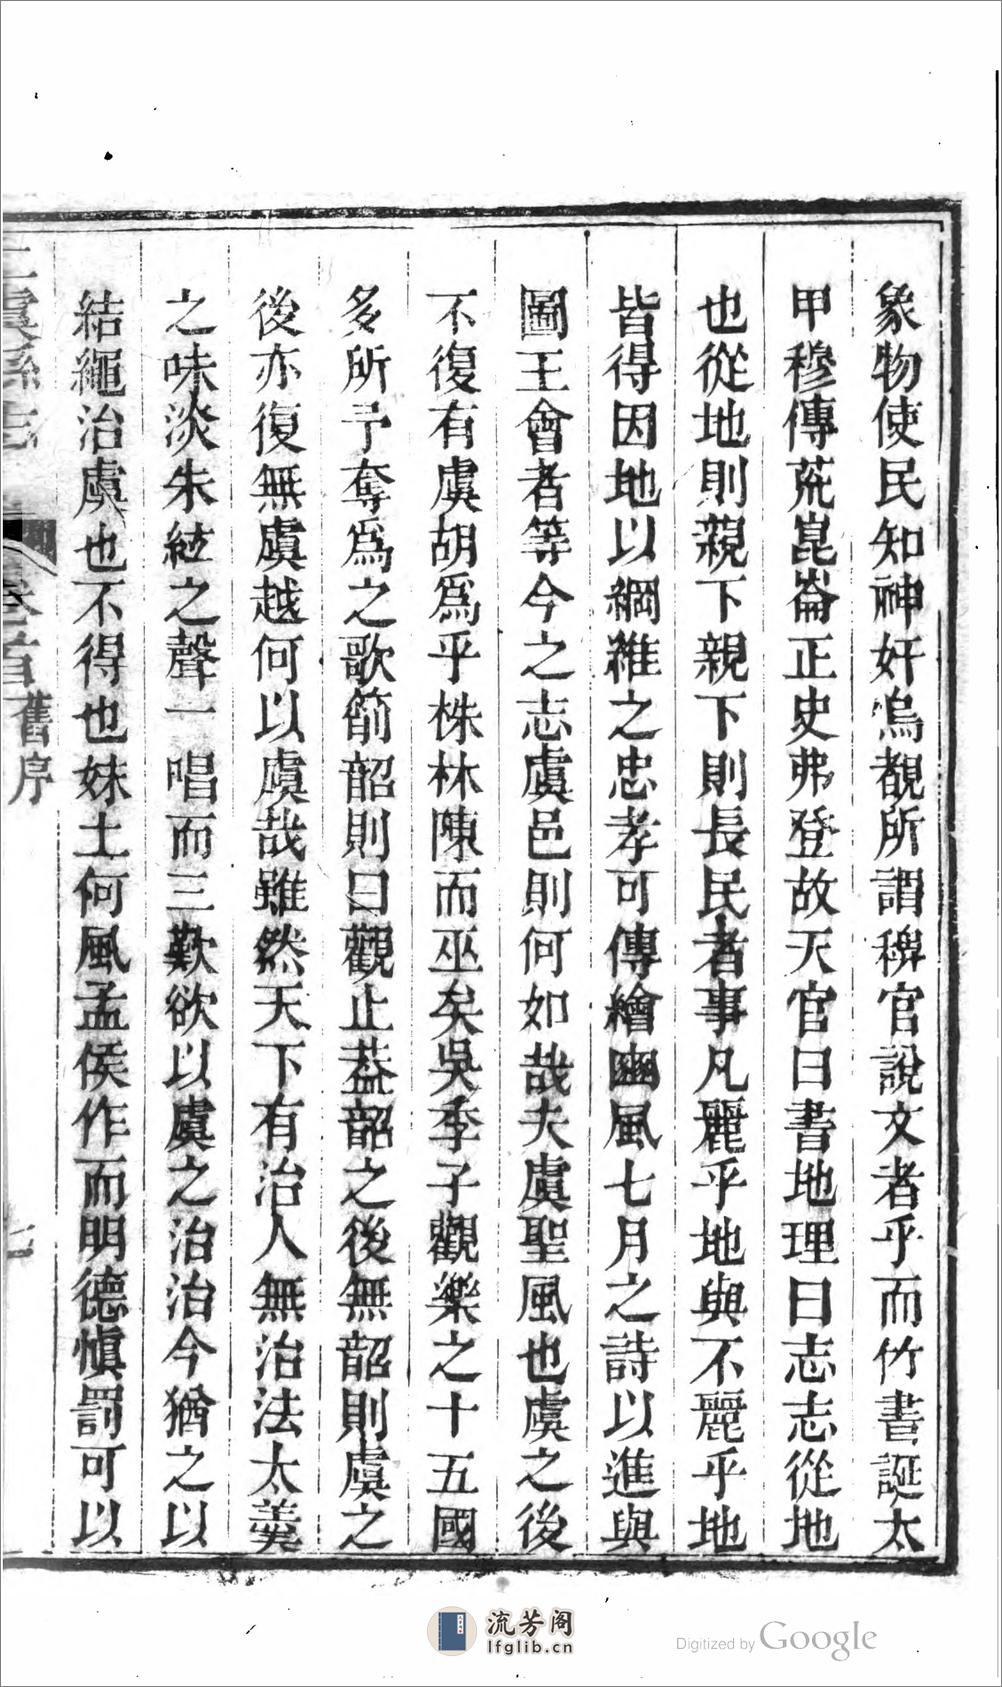 象物使民知神奸嗚覩所謂稗官說文者乎而竹書誕太
甲穆傳荒崑崙正史弗登故天官曰書地理曰志志從地
也從地則親下親下則長民者事凡麗乎地與不麗乎地
皆得因地以綱維之忠孝可傳繪豳風七月之詩以進與
圖王會者等今之志虞邑則何如哉夫虞聖風也虞之後
不復有虞胡爲乎株林陳而巫矣吳季子觀樂之十五國
多所予奪爲之歌箾韶則曰觀止葢韶之後無韶則虞之
後亦復無虞越何以虞哉雖然天下有治人無治法太羹
之味淡朱絃之聲一唱而三歎欲以虞之治治今猶之以
結繩治虞也不得也妹土何風孟侯作而明德愼罰可以
上虞縣志 卷首 舊序 七
流芳阁
lfglib.cn
Digitized by Google